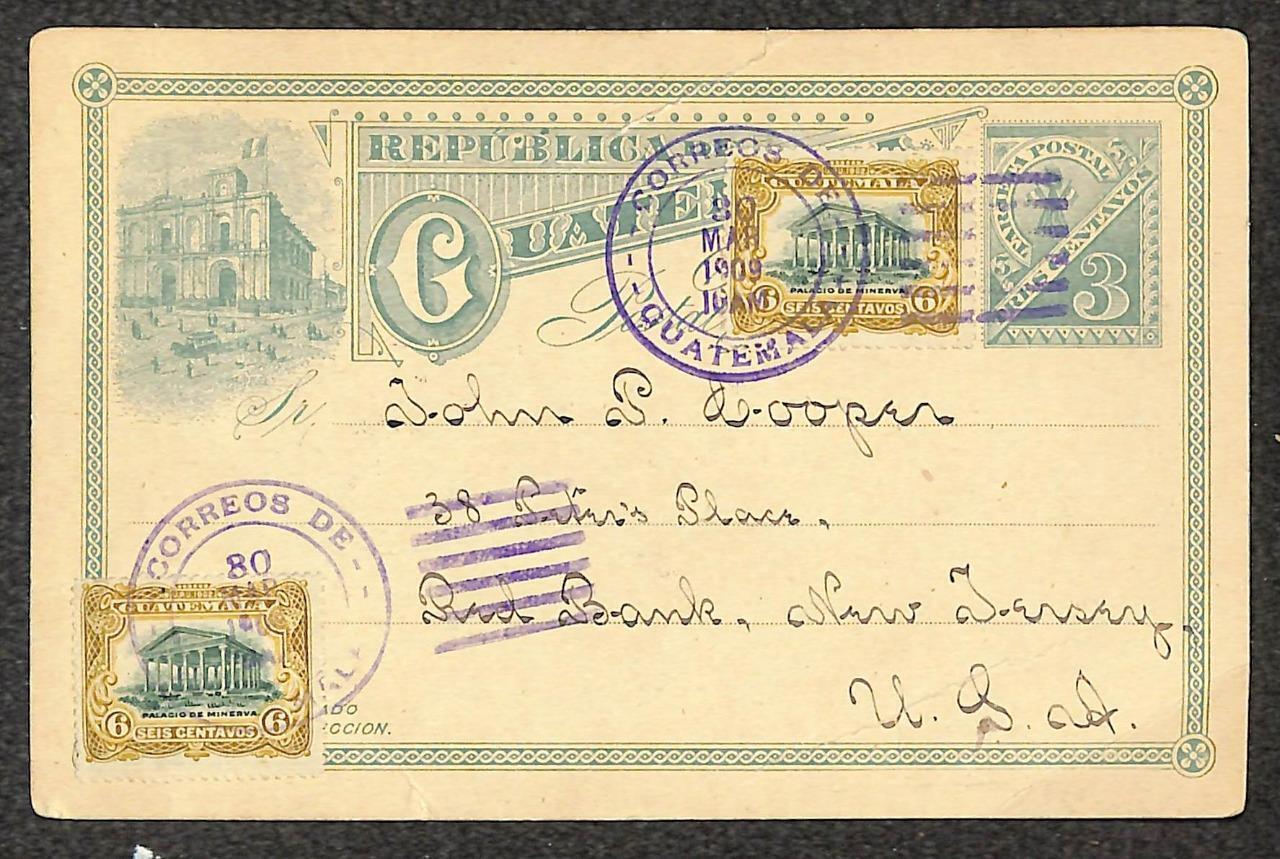 REPÚBLICA
GUATE
TARJETA POSTAL
TRES CENTAVOS
3
CORREOS DE
GUATEMALA
80
MAR
1909
10 AM
U.P.U. 1902
GUATEMALA
PALACIO DE MINERVA
6 SEIS CENTAVOS 6
Sr. John P. Cooper
38 Peter's Place,
Red Bank, New Jersey,
U. S. A.
CORREOS DE
80
U.P.U. 1902
GUATEMALA
PALACIO DE MINERVA
6 SEIS CENTAVOS 6
ADO
ECCION.